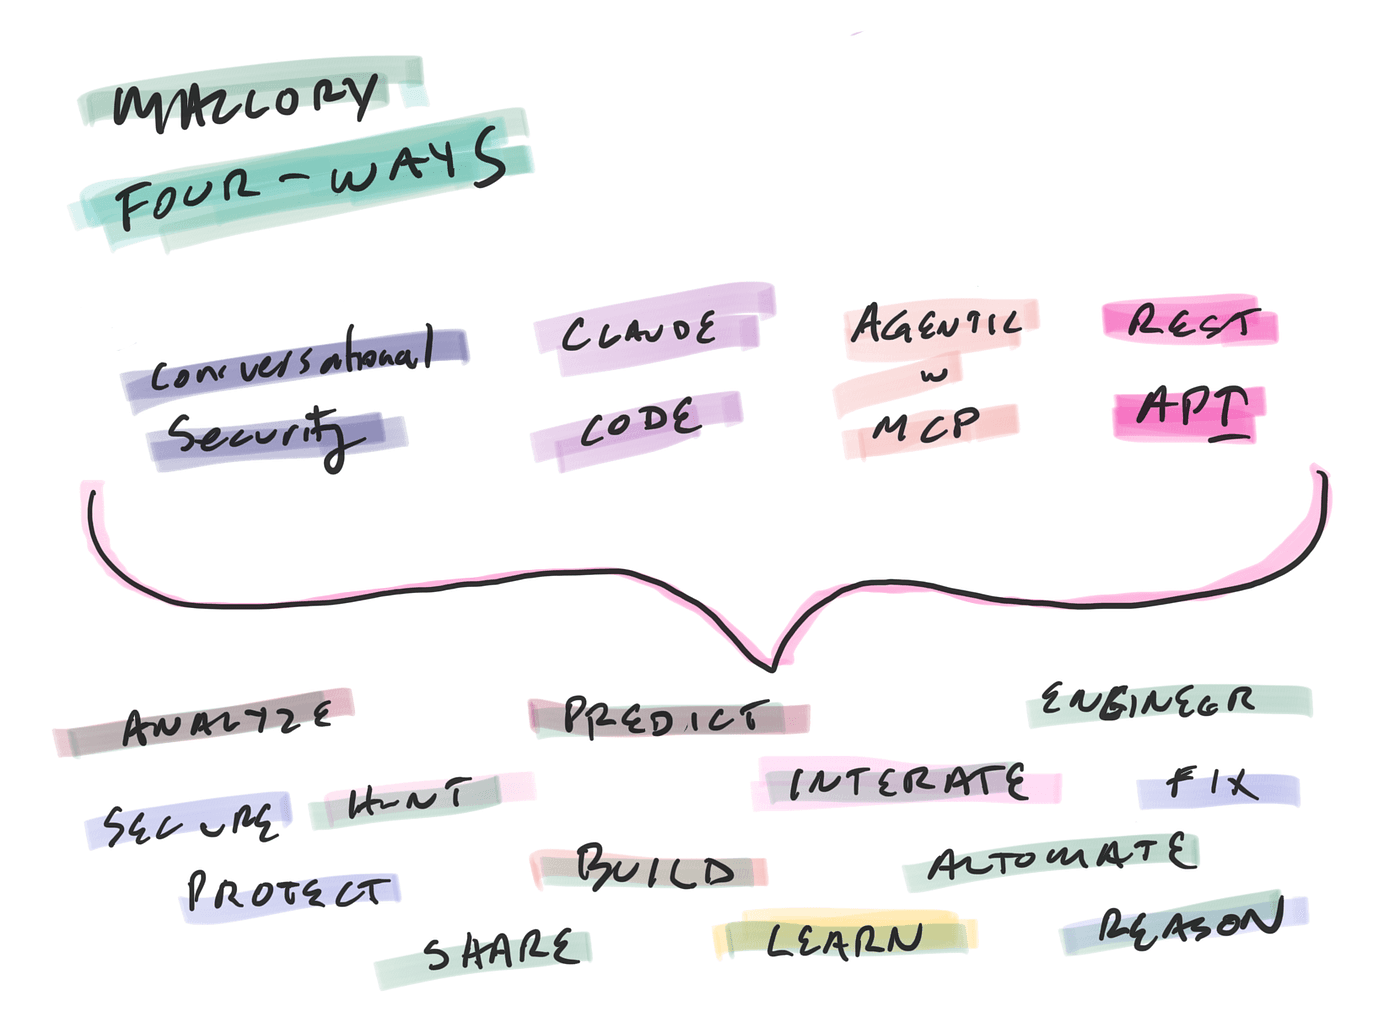 MALLORY
FOUR-WAYS
Conversational
Security
CLAUDE
CODE
AGENTIC
w
MCP
REST
API
ANALYZE
PREDICT
ENGINEER
SECURE
HUNT
INTERATE
FIX
PROTECT
BUILD
AUTOMATE
SHARE
LEARN
REASON